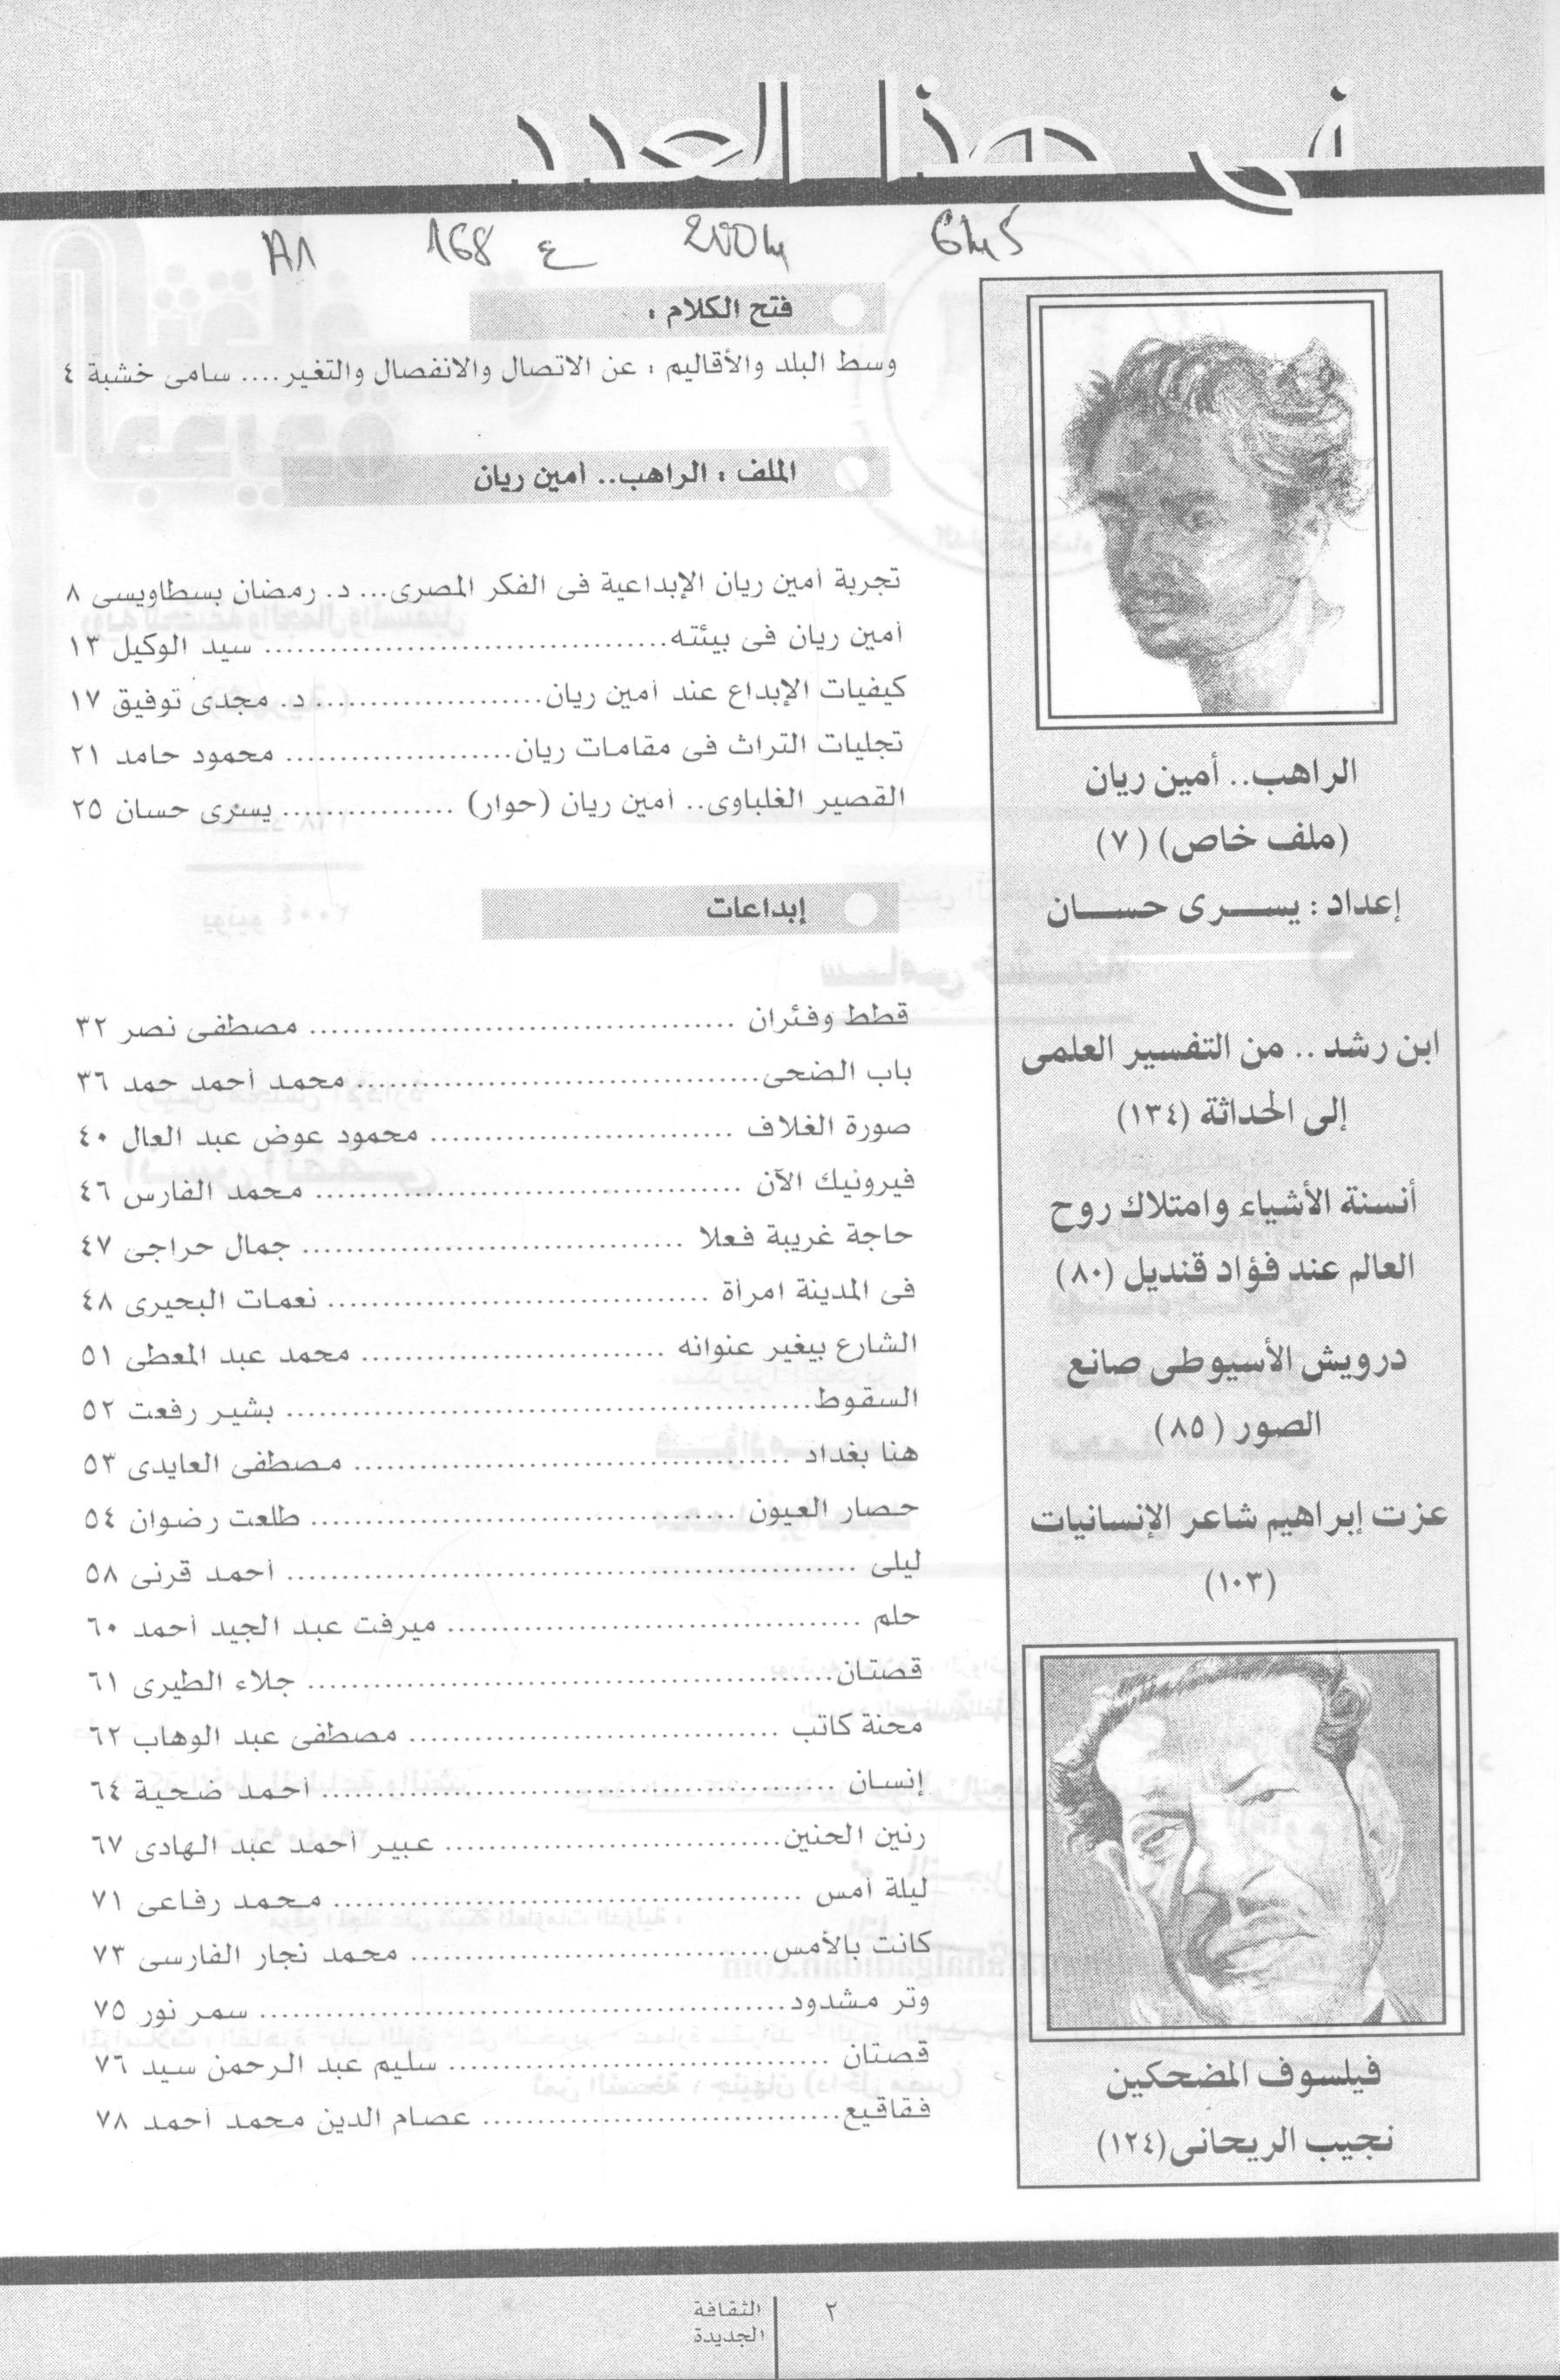 فى هذا العدد
A1 168 ع
فتح الكلام :
وسط البلد والأقاليم : عن الاتصال والانفصال والتغير.... سامى خشبة ٤
الملف : الراهب.. أمين ريان
تجربة أمين ريان الإبداعية فى الفكر المصرى... د. رمضان بسطاويسى ٨
أمين ريان فى بيئته..................................... سيد الوكيل ١٣
كيفيات الإبداع عند أمين ريان..................... د. مجدى توفيق ١٧
تجليات التراث فى مقامات ريان..................... محمود حامد ٢١
القصير الغلباوى.. أمين ريان (حوار) ................ يسرى حسان ٢٥
إبداعات
قطط وفئران ........................................ مصطفى نصر ٣٢
باب الضحى...................................... محمد أحمد حمد ٣٦
صورة الغلاف ............................. محمود عوض عبد العال ٤٠
فيرونيك الآن ........................................ محمد الفارس ٤٦
حاجة غريبة فعلا .................................... جمال حراجى ٤٧
فى المدينة امرأة .................................... نعمات البحيرى ٤٨
الشارع بيغير عنوانه ............................. محمد عبد المعطى ٥١
السقوط................................................. بشير رفعت ٥٢
هنا بغداد ......................................... مصطفى العايدى ٥٣
حصار العيون ........................................ طلعت رضوان ٥٤
ليلى ..................................................... أحمد قرنى ٥٨
حلم ....................................... ميرفت عبد الجيد أحمد ٦٠
قصتان................................................. جلاء الطيرى ٦١
محنة كاتب ................................... مصطفى عبد الوهاب ٦٢
إنسان ................................................ أحمد ضحية ٦٤
رنين الحنين................................ عبير أحمد عبد الهادى ٦٧
ليلة أمس ............................................ محمد رفاعى ٧١
كانت بالأمس.................................. محمد نجار الفارسى ٧٣
وتر مشدود................................................. سمر نور ٧٥
قصتان .................................... سليم عبد الرحمن سيد ٧٦
فقاقيع.................................. عصام الدين محمد أحمد ٧٨
الراهب.. أمين ريان
(ملف خاص) (٧)
إعداد : يسرى حسان
ابن رشد .. من التفسير العلمى
إلى الحداثة (١٣٤)
أنسنة الأشياء وامتلاك روح
العالم عند فؤاد قنديل (٨٠)
درويش الأسيوطى صانع
الصور (٨٥)
عزت إبراهيم شاعر الإنسانيات
(١٠٣)
فيلسوف المضحكين
نجيب الريحانى(١٢٤)
٢
الثقافة
الجديدة